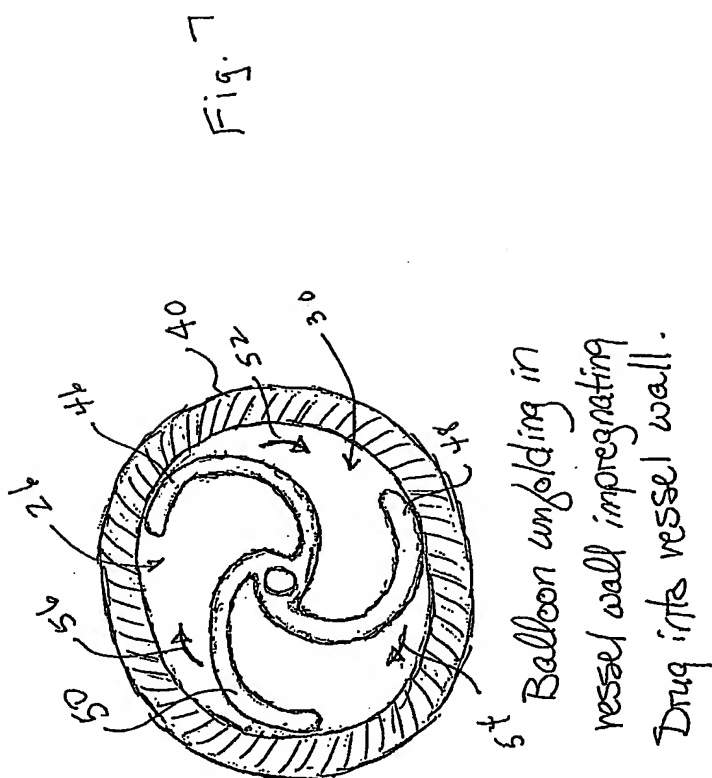 Fig. 7
26
46
40
52
30
56
50
48
54
Balloon unfolding in
vessel wall impregnating
Drug into vessel wall.